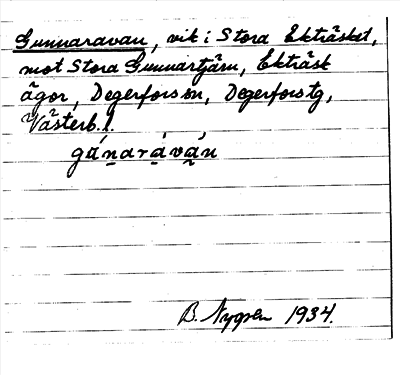 Gunnaravan, vik i Stora Ekträsket,
mot Stora Gunnartjärn, Ekträsk
ägor, Degerfors sn, Degerfors tg,
Västerb. l.
gánaràván
B. Nygren 1934.